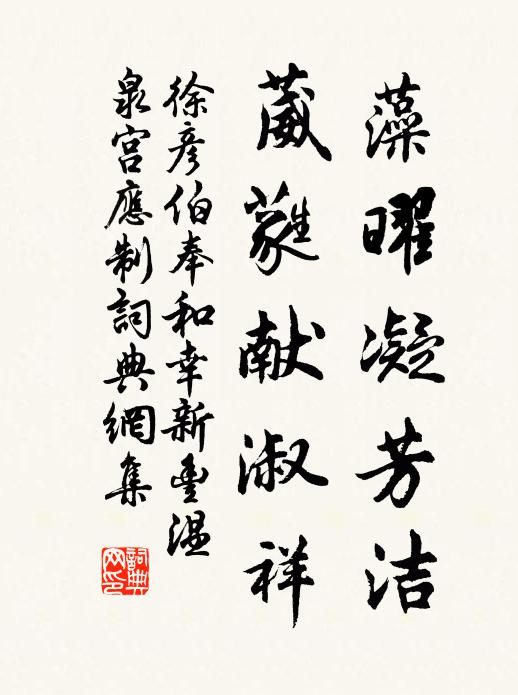 藻曜凝芳洁
葳蕤献淑祥
徐彦伯奉和幸新豊温
泉宫應制詞典網集
詞典网印